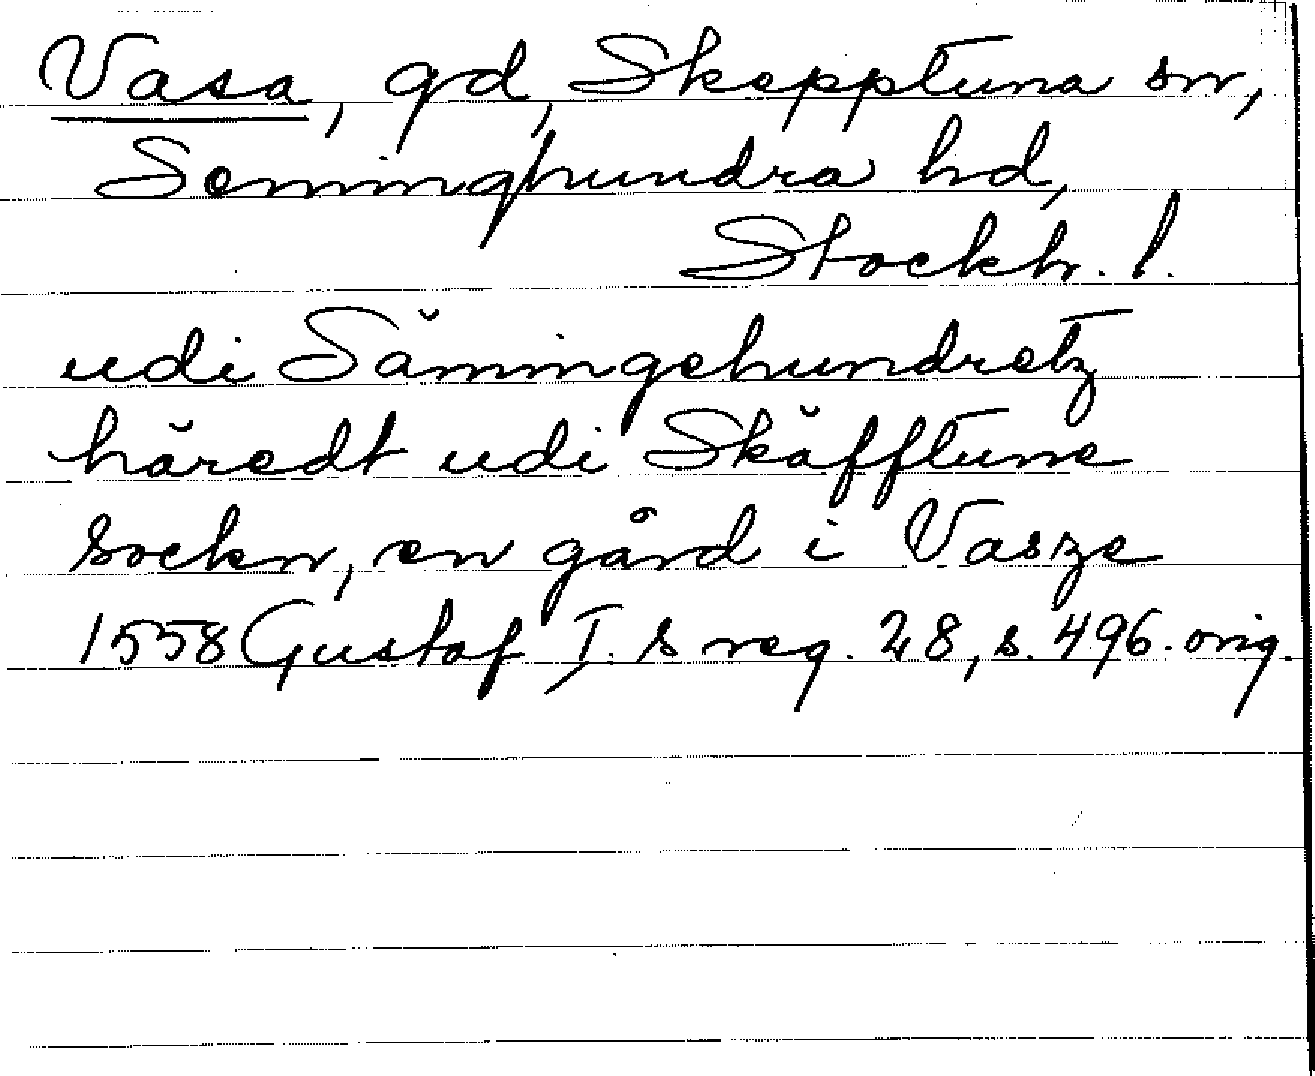 Vasa, gd, Skepptuna sn,
Seminghundra hd,
Stockh. l.
udi Sämmingehundretz
häredt udi Skäfftune
sockn, en gård i Vasze
1558 Gustaf I. s reg. 28, s. 496. orig.